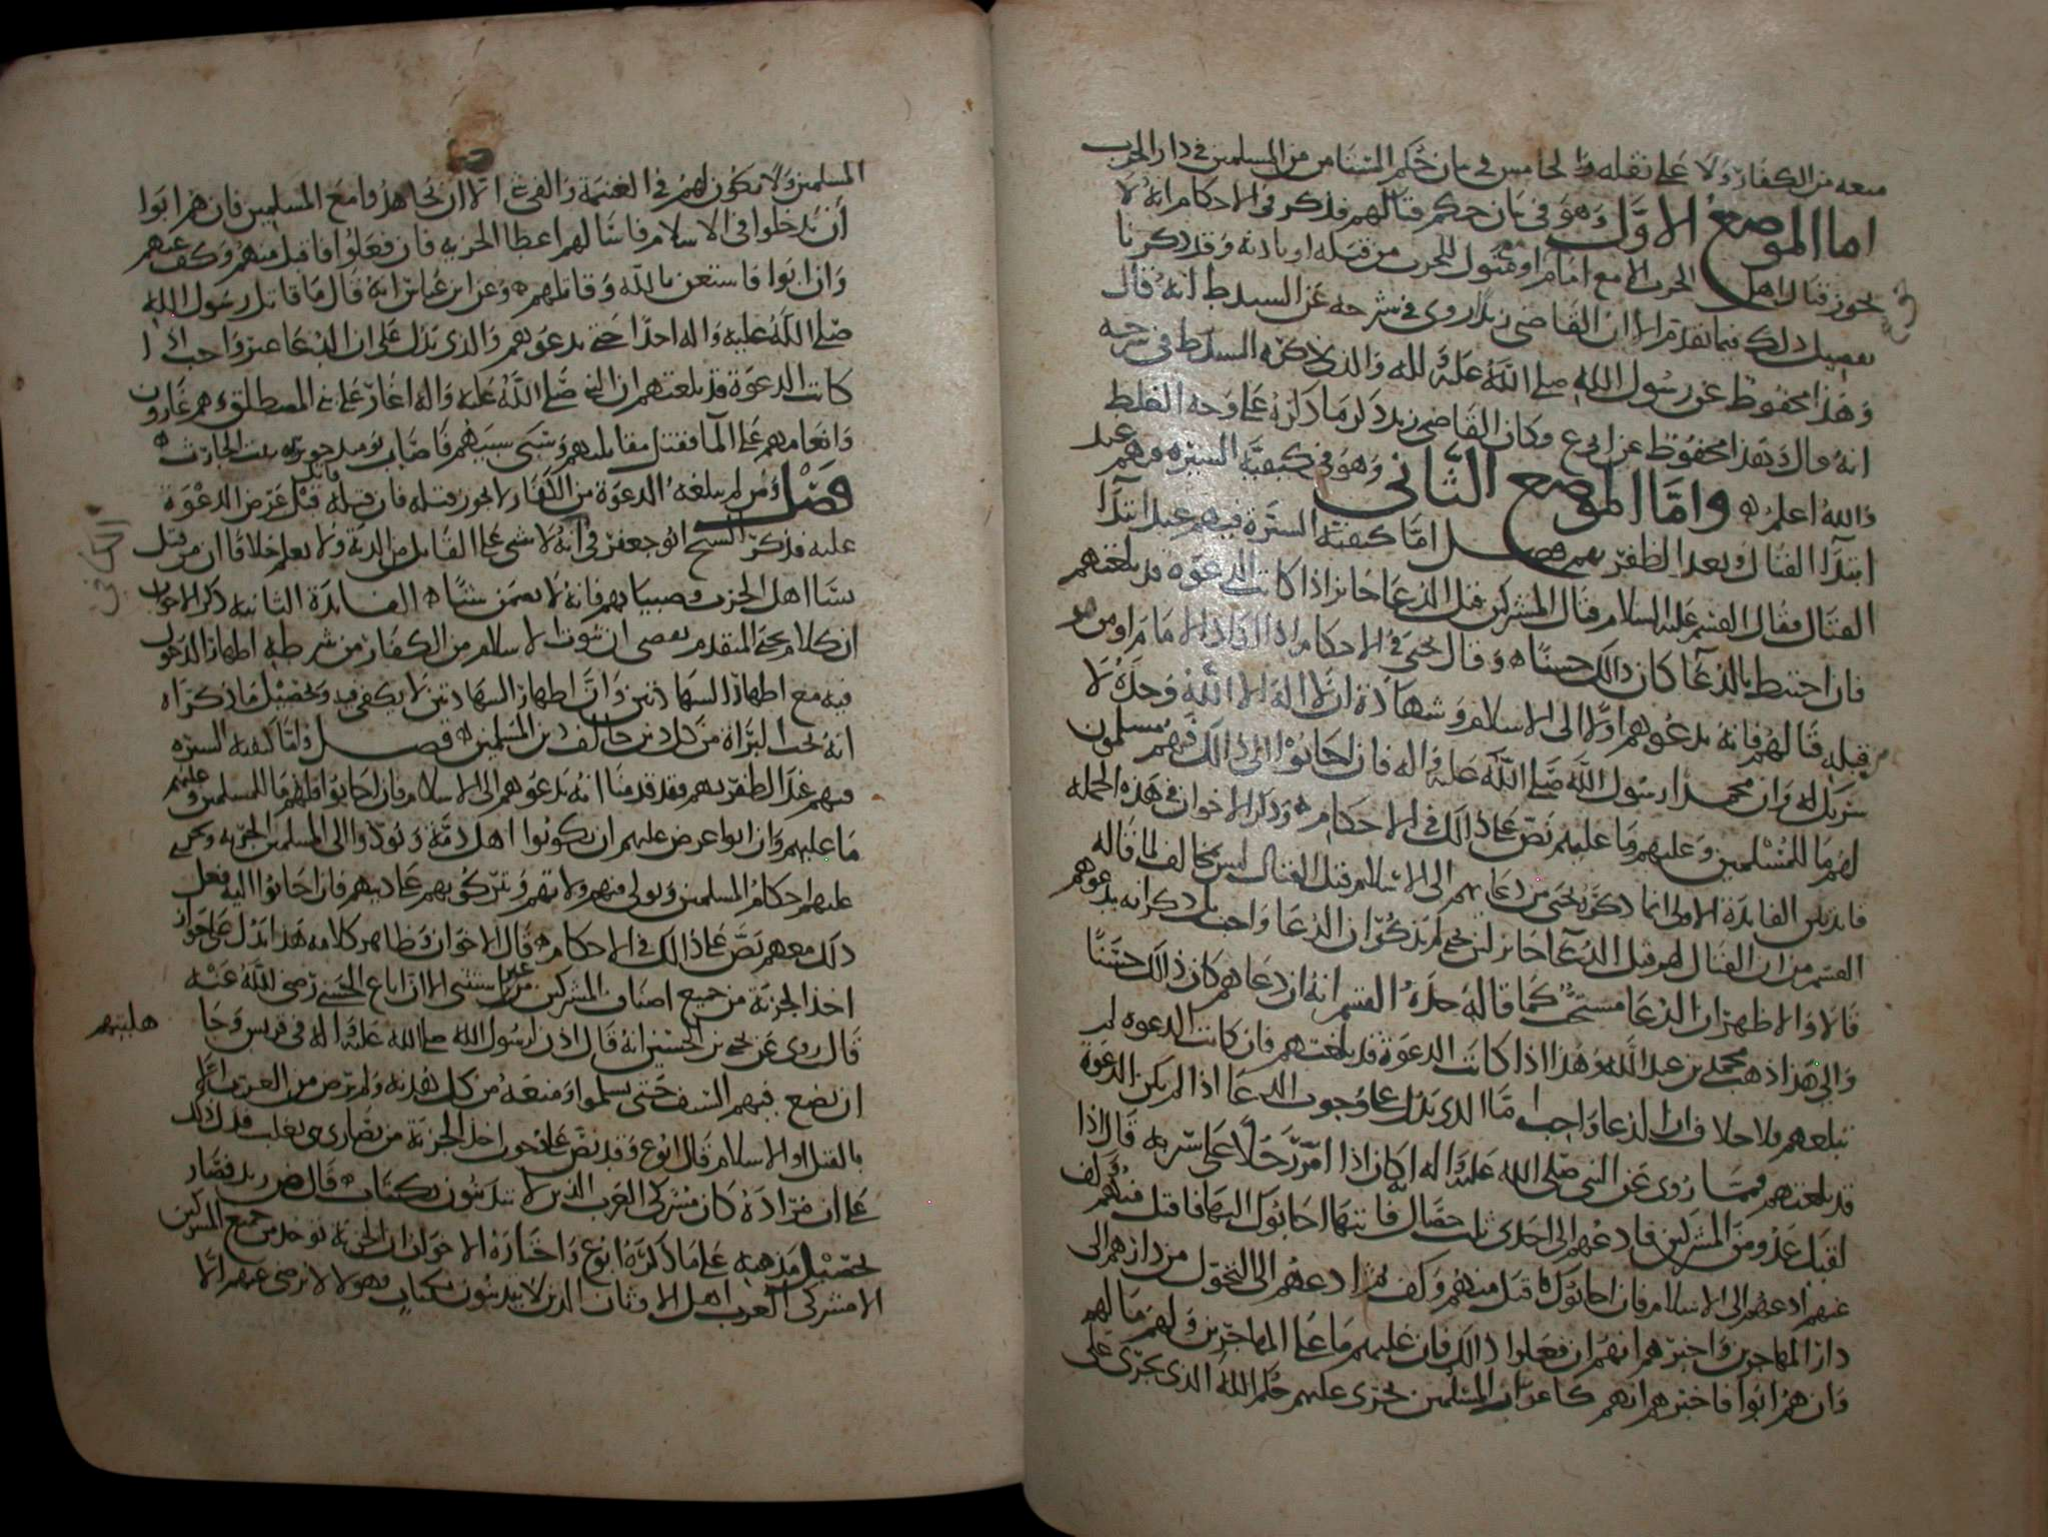 منعه من الكفار ولا على نقله والخامس في بيان حكم المستامن من المسلمين في دار الحرب
اما الموضع الاول وهو في بيان حكم قتالهم فذكر في الاحكام انه لا
يجوز قتال اهل الحرب الا مع امام او متول للحرب من قبله او باذنه وقد ذكرنا
تفصيل ذلك فيما تقدم الا ان القاضي زيد روى في شرحه عن السيد ط انه قال
وهذا محفوظ عن رسول الله صلى الله عليه واله والذي ذكره السيد ط في شرحه
انه قال وهذا محفوظ عن ابي ع وكان القاضي زيد ذكر ما ذكره على وجه الغلط
والله اعلم واما الموضع الثاني وهو في كيفية السيرة فيهم عند
ابتدا القتال وبعد الظفر بهم فصل اما كيفية السيرة فيهم عند ابتدا
القتال فقال القسم عليه السلام قتال المشركين قبل الدعا جائز اذا كانت الدعوة قد بلغتهم
فان احتيط بالدعا كان ذالك حسنا وقال يحيى في الاحكام اذا اراد الامام او من هو
من قبله قتالهم فانه يدعوهم اولا الى الاسلام وشهادة ان لا اله الا الله وحده لا
شريك له وان محمدا رسول الله صلى الله عليه واله فان اجابوا الى ذالك فهم مسلمون
لهم ما للمسلمين وعليهم ما عليهم نص على ذالك في الاحكام وذكر الاخوان في هذه الجملة
فائدتين الفائدة الاولى انما ذكره يحيى من دعائهم الى الاسلام قبل القتال ليس يخالف لما قاله
القسم من ان القتال لهم قبل الدعا جائز لان يحيى لم يذكر ان الدعا واجب بل ذكر انه يدعوهم
قالا والاظهر ان الدعا مستحب كما قاله جده القسم انه ان دعاهم كان ذالك حسنا
والى هذا ذهب محمد بن عبد الله وهذا اذا كانت الدعوة قد بلغتهم فان كانت الدعوة لم
تبلغهم فلا خلاف ان الدعا واجب اما الذي يدل على وجوب الدعا اذا لم يكن الدعوة
قد بلغتهم فما روى عن النبي صلى الله عليه واله انه كان اذا امر رجلا على سرية قال اذا
لقيت عدوا من المشركين فادعهم الى احدى ثلث خصال فايتها اجابوك اليها فاقبل منهم وكف
عنهم ادعهم الى الاسلام فان اجابوك فاقبل منهم وكف ثم ادعهم الى التحول من دارهم الى
دار المهاجرين واخبرهم انهم ان فعلوا ذالك فان عليهم ما على المهاجرين ولهم ما لهم
وان هم ابوا فاخبرهم انهم كاعراب المسلمين يجرى عليهم حكم الله الذي يجرى على
المسلمين ولا يكون لهم في الغنيمة والفي الا ان يجاهدوا مع المسلمين فان هم ابوا
أن يدخلوا في الاسلام فاسالهم اعطا الجزيه فان فعلوا فاقبل منهم وكف عنهم
وان ابوا فاستعن بالله وقاتلهم وعن ابن عباس انه قال ما قاتل رسول الله
صلى الله عليه واله احدا حتى يدعوهم والذي يدل على ان الدعا غير واجب اذا
كانت الدعوة قد بلغتهم ان النبي صلى الله عليه واله اغار على بني المصطلق وهم غارون
وانعامهم على الما فقتل مقاتليهم وسبى سبيهم فاصاب يوميذ جويرية بنت الحارث
فصل ومن لم يبلغه الدعوة من الكفار لا يجوز قتله فان قتله قاتل قبل عرض الدعوة
عليه فذكر الشيخ ابو جعفر في انه لا شي على القاتل من الدية ولا يعلم خلافا ان من قتل
نسا اهل الحرب وصبيانهم فانه لا يضمن شيئا الفائدة الثانيه ذكر الاخوان
ان كلام يحيى المتقدم يقضي ان ثبوت الاسلام من الكفار من شرطه اظهار الدخول
فيه مع اظهار الشهادتين وان اظهار الشهادتين لا يكفي فيه وتحصيل ما ذكراه
انه يجب البراة من كل دين خالف دين المسلمين فصل واما كيفية السيرة
فيهم عند الظفر بهم فقد قدمنا انه يدعوهم الى الاسلام فان اجابوا فلهم ما للمسلمين وعليهم
ما عليهم وان ابوا عرض عليهم ان يكونوا اهل ذمة ويودوا الى المسلمين الجزيه ويجرى
عليهم احكام المسلمين ويولى منهم ولاتهم وتتركو بهم عاديهم فان اجابوا اليه فعل
ذلك معهم نص على ذالك في الاحكام قال الاخوان وظاهر كلامه هذا يدل على جواز
اخذ الجزية من جميع اصناف المشركين من غير استثنى الا ان ابا ع الحسني رضى الله عنه
قال روى عن يحيى بن الحسين انه قال اذن لرسول الله صلى الله عليه واله في قريش وجا
هليتهم
ان يضع فيهم السيف حتى يسلموا ومنعه من كل هدنة ولم يرض من العرب الا
بالقتل او الاسلام قال ابو ع وقد نص على جواز اخذ الجزية من نصارى بني تغلب فدل ذلك
على ان مراده كان مشركي العرب الذين لا يتدينون بكتاب قال ض زيد فصار
تحصيل مذهبه على ما ذكره ابو ع واختاره الاخوان ان الجزية توخذ من جميع المشركين
الا مشركي العرب اهل الاوثان الذين لا يتدينون بكتاب فهولا لا نرضى عنهم الا